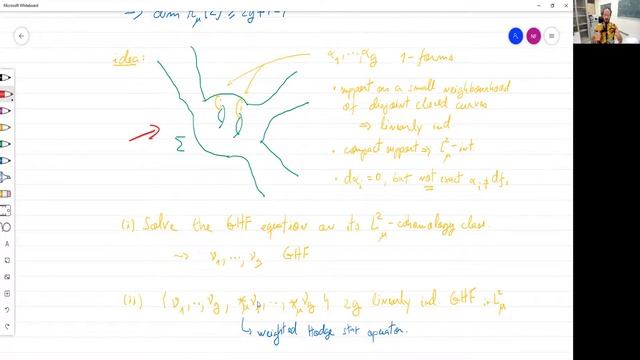 Microsoft Whiteboard
idea:
α₁, ..., α_g 1-forms
• support on a small neighbourhood
of disjoint closed curves
⇒ linearly ind
• compact support ⇒ L²_μ-int
• dα_i = 0, but not exact α_i ≠ df_i
Σ
(i) Solve the GHF equation on its L²_μ-cohomology class.
⇝ ν₁, ..., ν_g GHF
(ii) {ν₁, ..., ν_g, *_μν₁, ..., *_μν_g} 2g linearly ind GHF in L²_μ
↳ weighted Hodge star operator.
NF